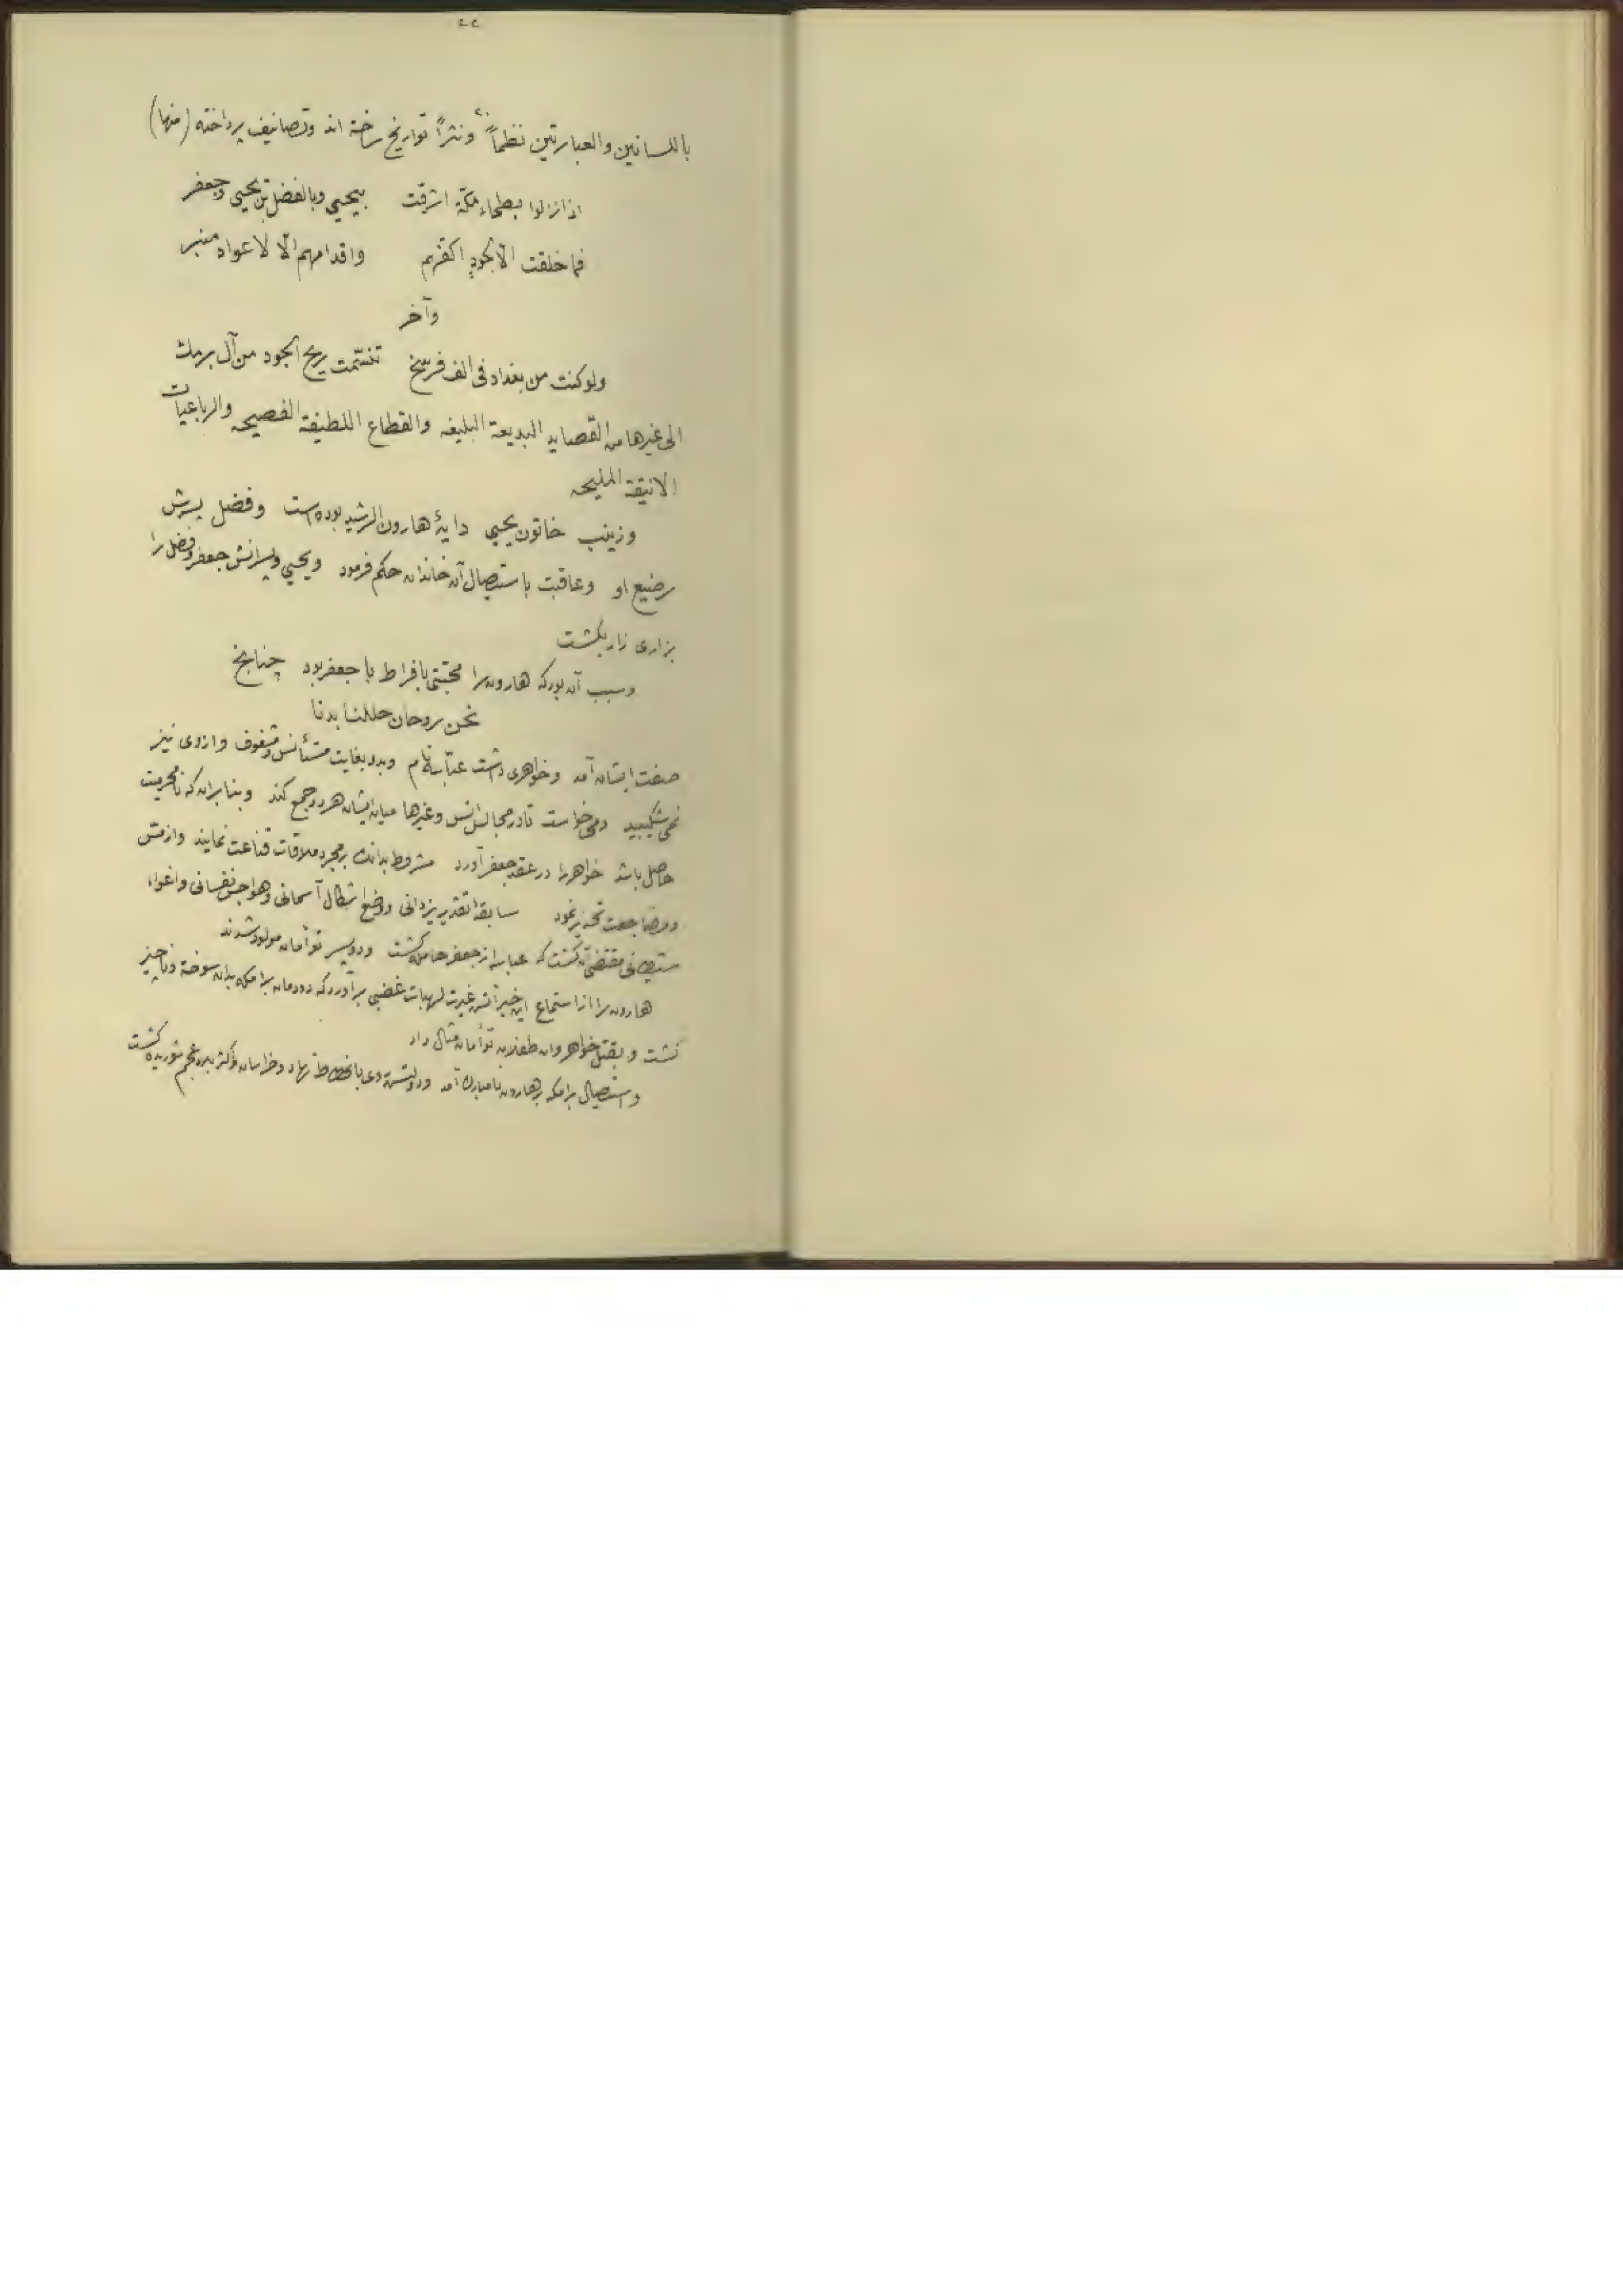 ٢٢
باللسانین والعبارتین نظماً ونثراً تواریخ ساخته اند وتصانیف پرداخته (منها)
اذا نزلوا بطحاء مکة اشرقت بیحیی وبالفضل بن یحیی وجعفر
فما خلقت الّا لجودٍ اکفّهم واقدامهم الّا لاعواد منبر
وآخر
ولو کنت من بغداد فی الف فرسخ تنسّمت ریح الجود من آل برمك
الی غیرها من القصاید البدیعة البلیغه والقطاع اللطیفة الفصیحه والرباعیات
الانیقة الملیحه
وزینب خاتون یحیی دایۀ هارون الرشید بوده است وفضل پسرش
رضیع او وعاقبت باستیصال آن خاندان حکم فرمود ویحیی وپسرانش جعفر وفضل را
بزاری زار بکشت
وسبب آن بود که هارون را محبّتی بافراط با جعفر بود چنانچ
نحن روحان حللنا بدنا
صفت ایشان آمد وخواهری داشت عبّاسه نام وبدو بغایت مستأنس ومشغوف وازوی نیز
نمی شکیبید ومی خواست تا در مجالس انس وغیرها میان ایشان هر دو جمع کند وبنابران که تا محرمیت
حاصل باشد خواهر را در عقد جعفر آورد مشروط بدانك بر مجرد ملاقات قناعت نمایند واز مسّ
ومضاجعت تحذیر نمود سابقۀ تقدیر یزدانی ووضع اشکال آسمانی وهواجس نفسانی واغواء
شیطانی مقتضی آن گشت که عباسه از جعفر حامله گشت ودو پسر توأمان مولود شدند
هارون را از استماع این خبر آتش غیرت لهبات غضبی برآورد که دودمان برامکه بدان سوخته وناچیز
گشت وبقتل خواهر وان طفلان توأمان مثال داد
واستیصال برامکه بر هارون نامبارك آمد ودولتش روی بانحطاط نهاد وخراسان واکثر بلاد عجم شوریده گشت